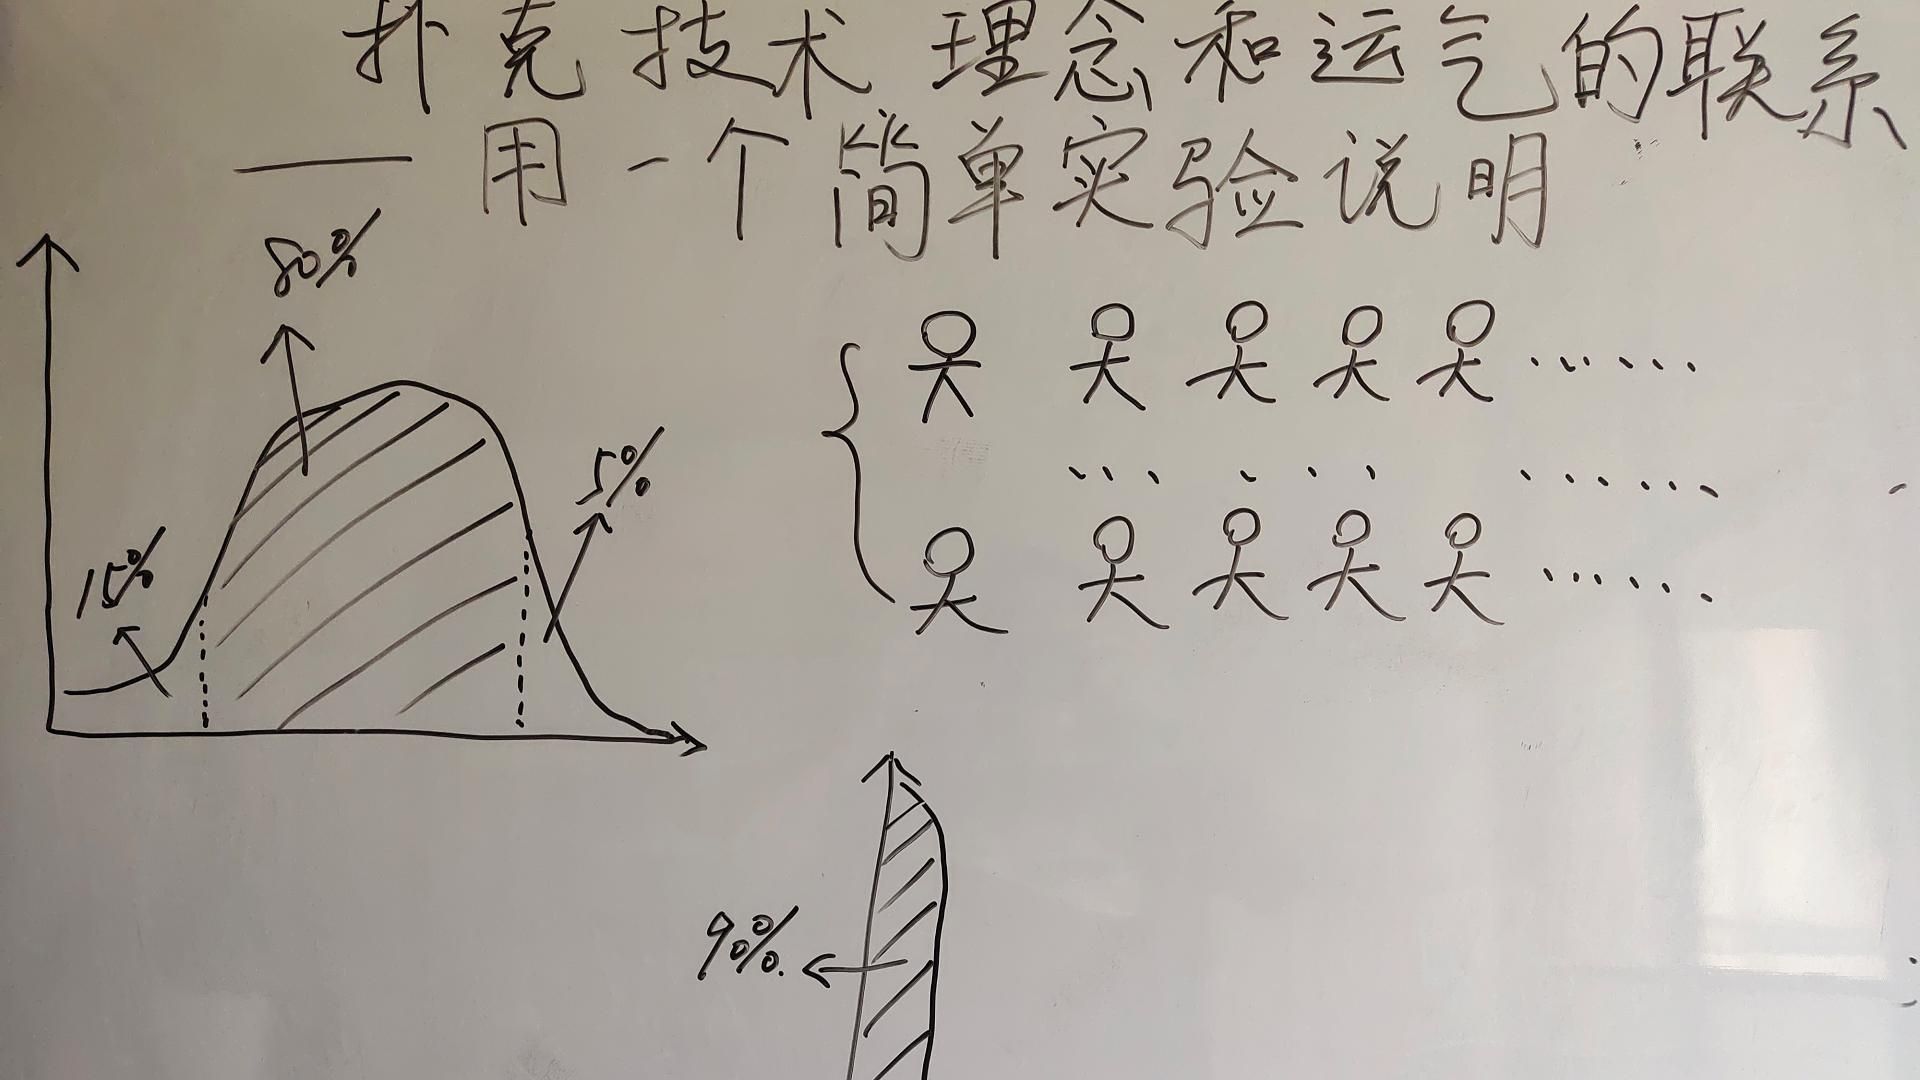 扑克技术 理念和运气的联系
——用一个简单实验说明
80%
5%
15%
90%